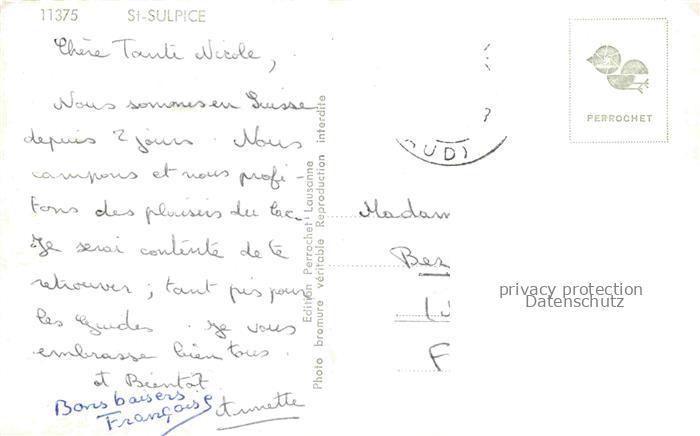 11375 St-SULPICE
Chère Tante Nicole,
Nous sommes en Suisse
depuis 2 jours. Nous
campons et nous profi-
tons des plaisirs du lac.
Je serai contente de te
retrouver; tant pis pour
les Guides. Je vous
embrasse bien tous.
et Bientôt
Annette
Bons baisers
Françoise
Edition Perrochet-Lausanne
Photo bromure véritable Reproduction interdite
UD)
PERROCHET
Madam
Bez
F
privacy protection
Datenschutz